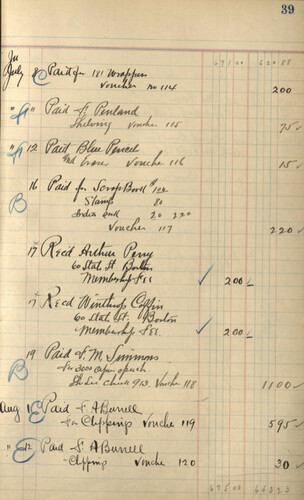 39
671.00 620.88
July 8 Paid for 121 Wrappers
Voucher no 114 200
" " Paid F. Penland
Shelving Voucher 115 75
" 12 Paid Blue Pencil
and Eraser Voucher 116 15
16 Paid for Scrap Book
Stamp 80
India ink 20 220
Voucher 117 220
17 Recd Arthur Perry
60 State St Boston
Membership Fee 200
17 Recd Winthrop Coffin
60 State St. Boston
Membership Fee 200
19 Paid F. M. Simmons
for 3000 copies speech
Voucher 118 1100
Aug 1 Paid F A Burrell
for Clippings Voucher 119 595
" 12 Paid F. A Burrell
Clipping Voucher 120 30
675.00